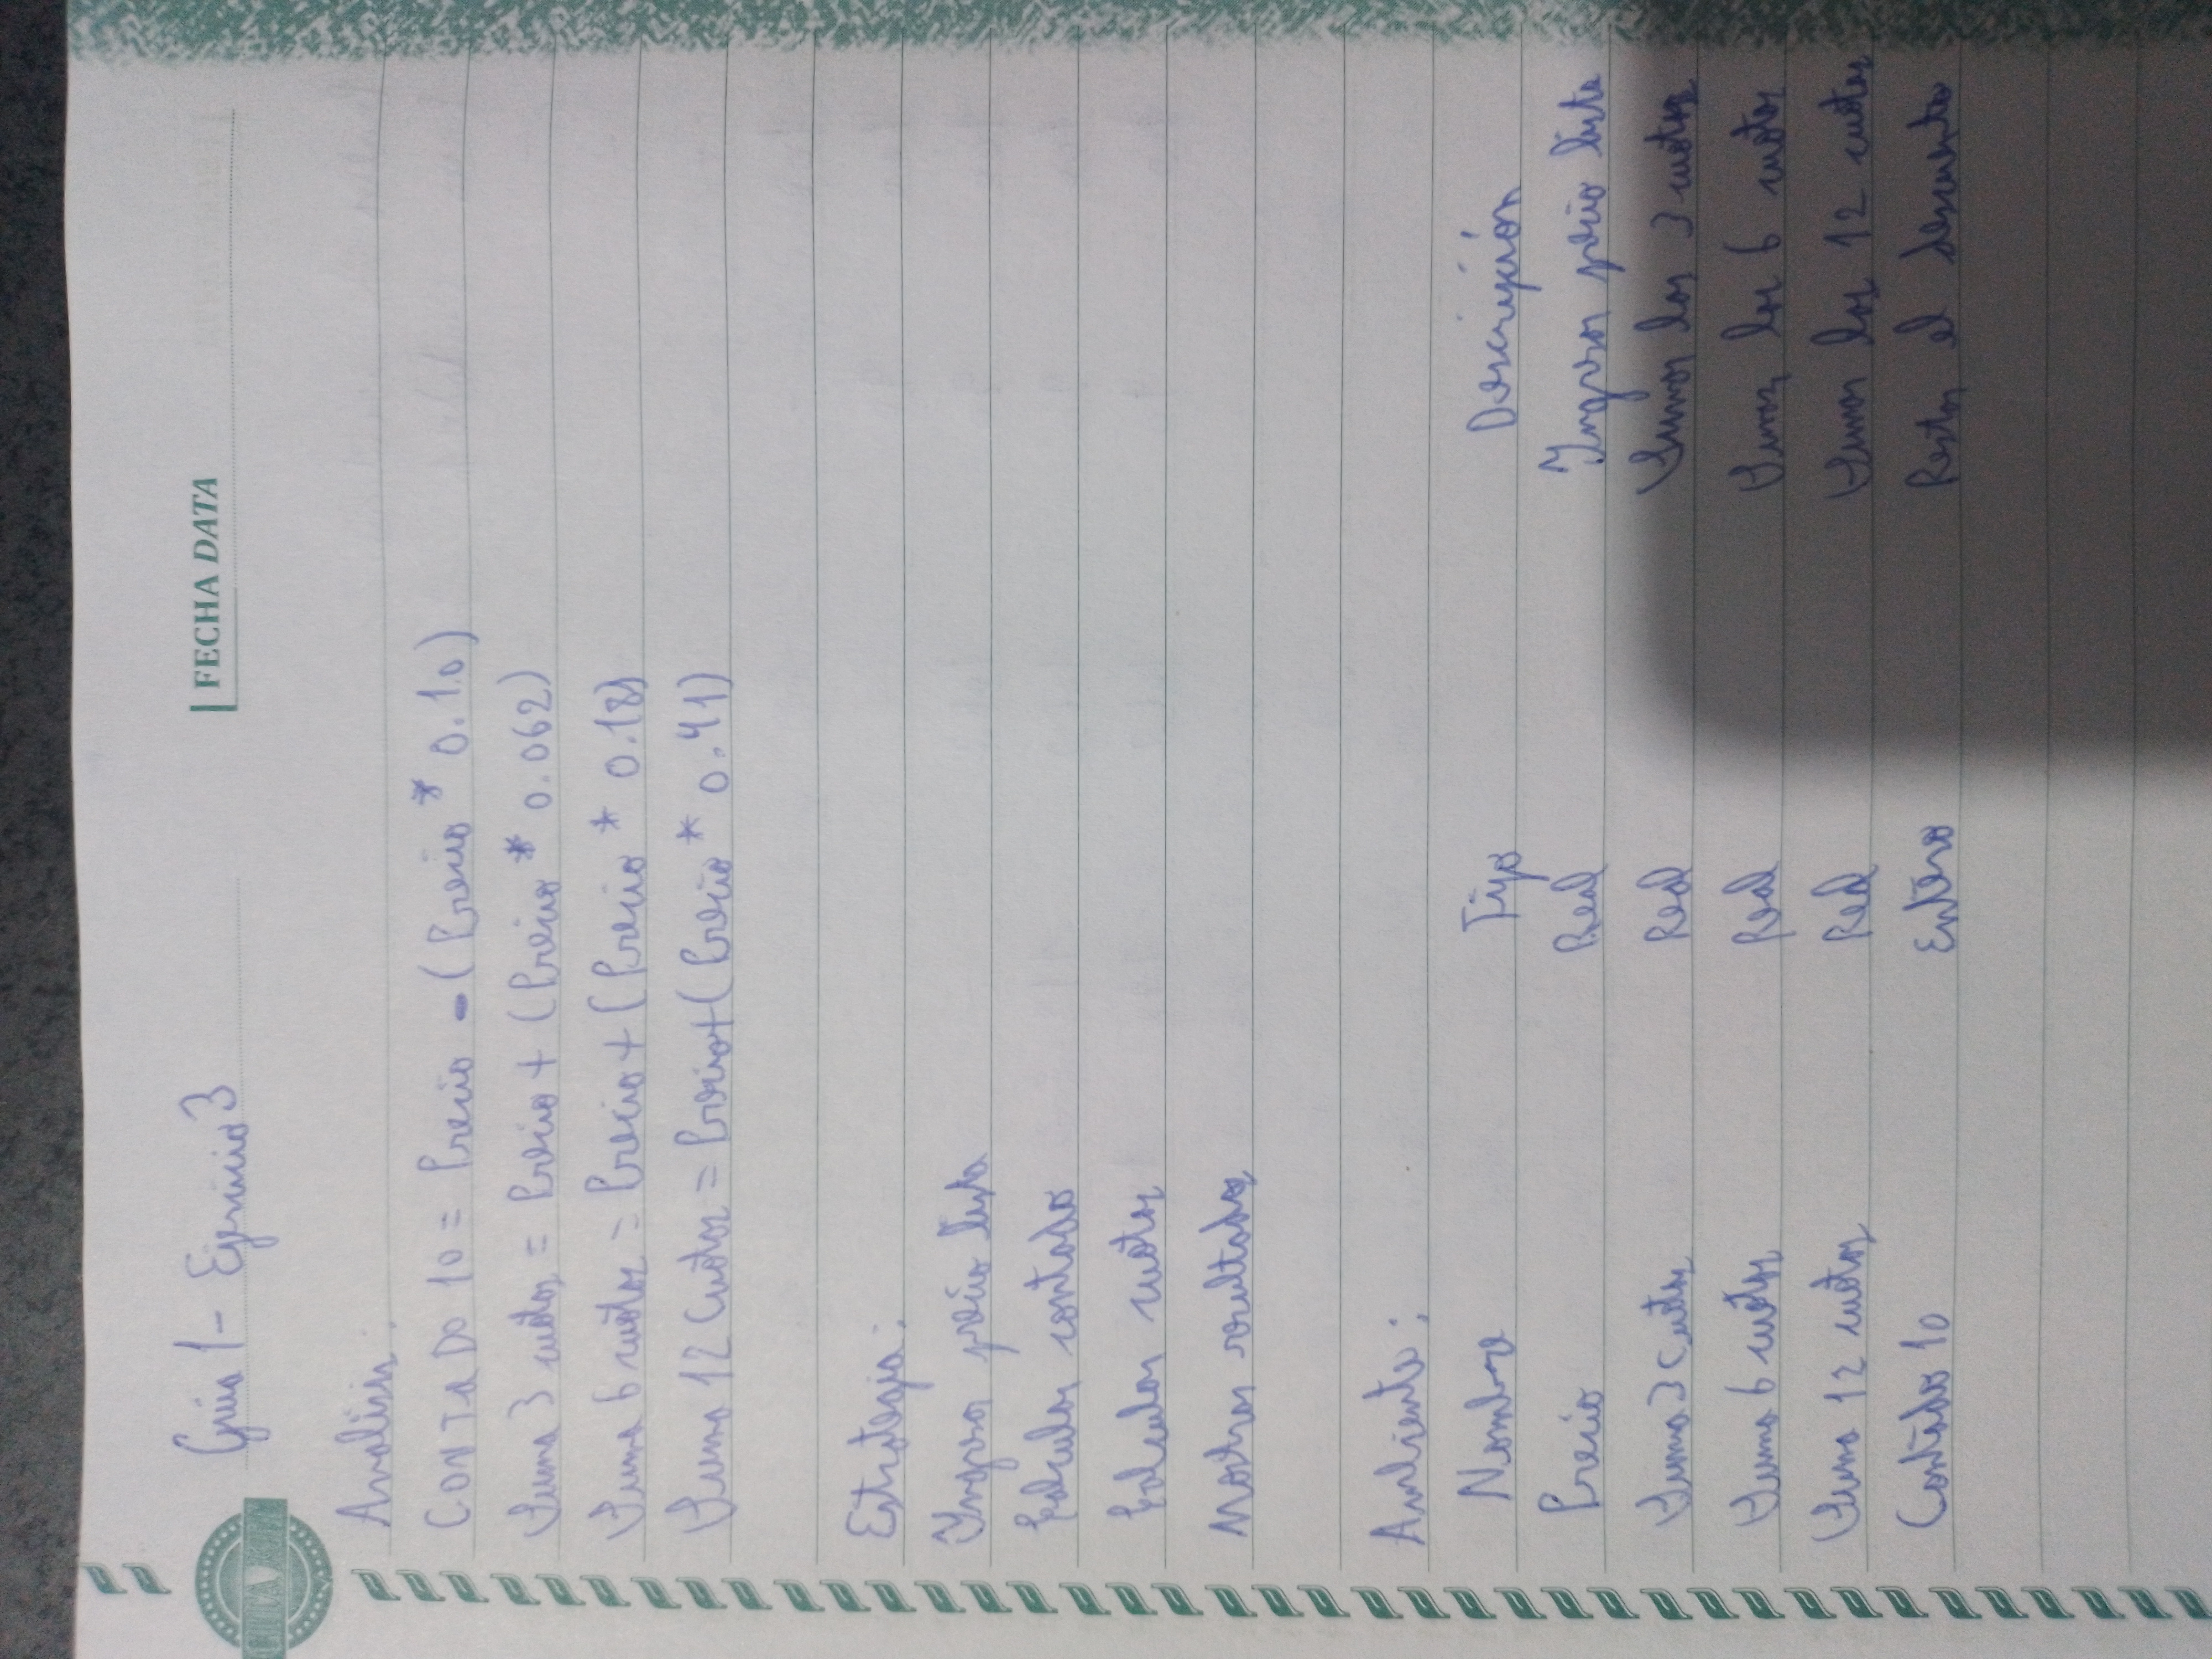 Guia 1 - Ejercicio 3
FECHA DATA
Analisis:
CONTADO 10 = Precio - (Precio * 0.10)
Suma 3 cuotas = Precio + (Precio * 0.062)
Suma 6 cuotas = Precio + (Precio * 0.18)
Suma 12 Cuotas = Precio + (Precio * 0.41)
Estrategia:
Ingresar precio lista
Calcular contado
Calcular cuotas
Mostrar resultados
Ambiente:
Nombre Tipo Descripción
Precio Real Ingresar precio lista
Suma 3 Cuotas Real Sumar las 3 cuotas
Suma 6 cuotas Real Sumar las 6 cuotas
Suma 12 cuotas Real Sumar las 12 cuotas
Contado 10 Entero Restar el descuento